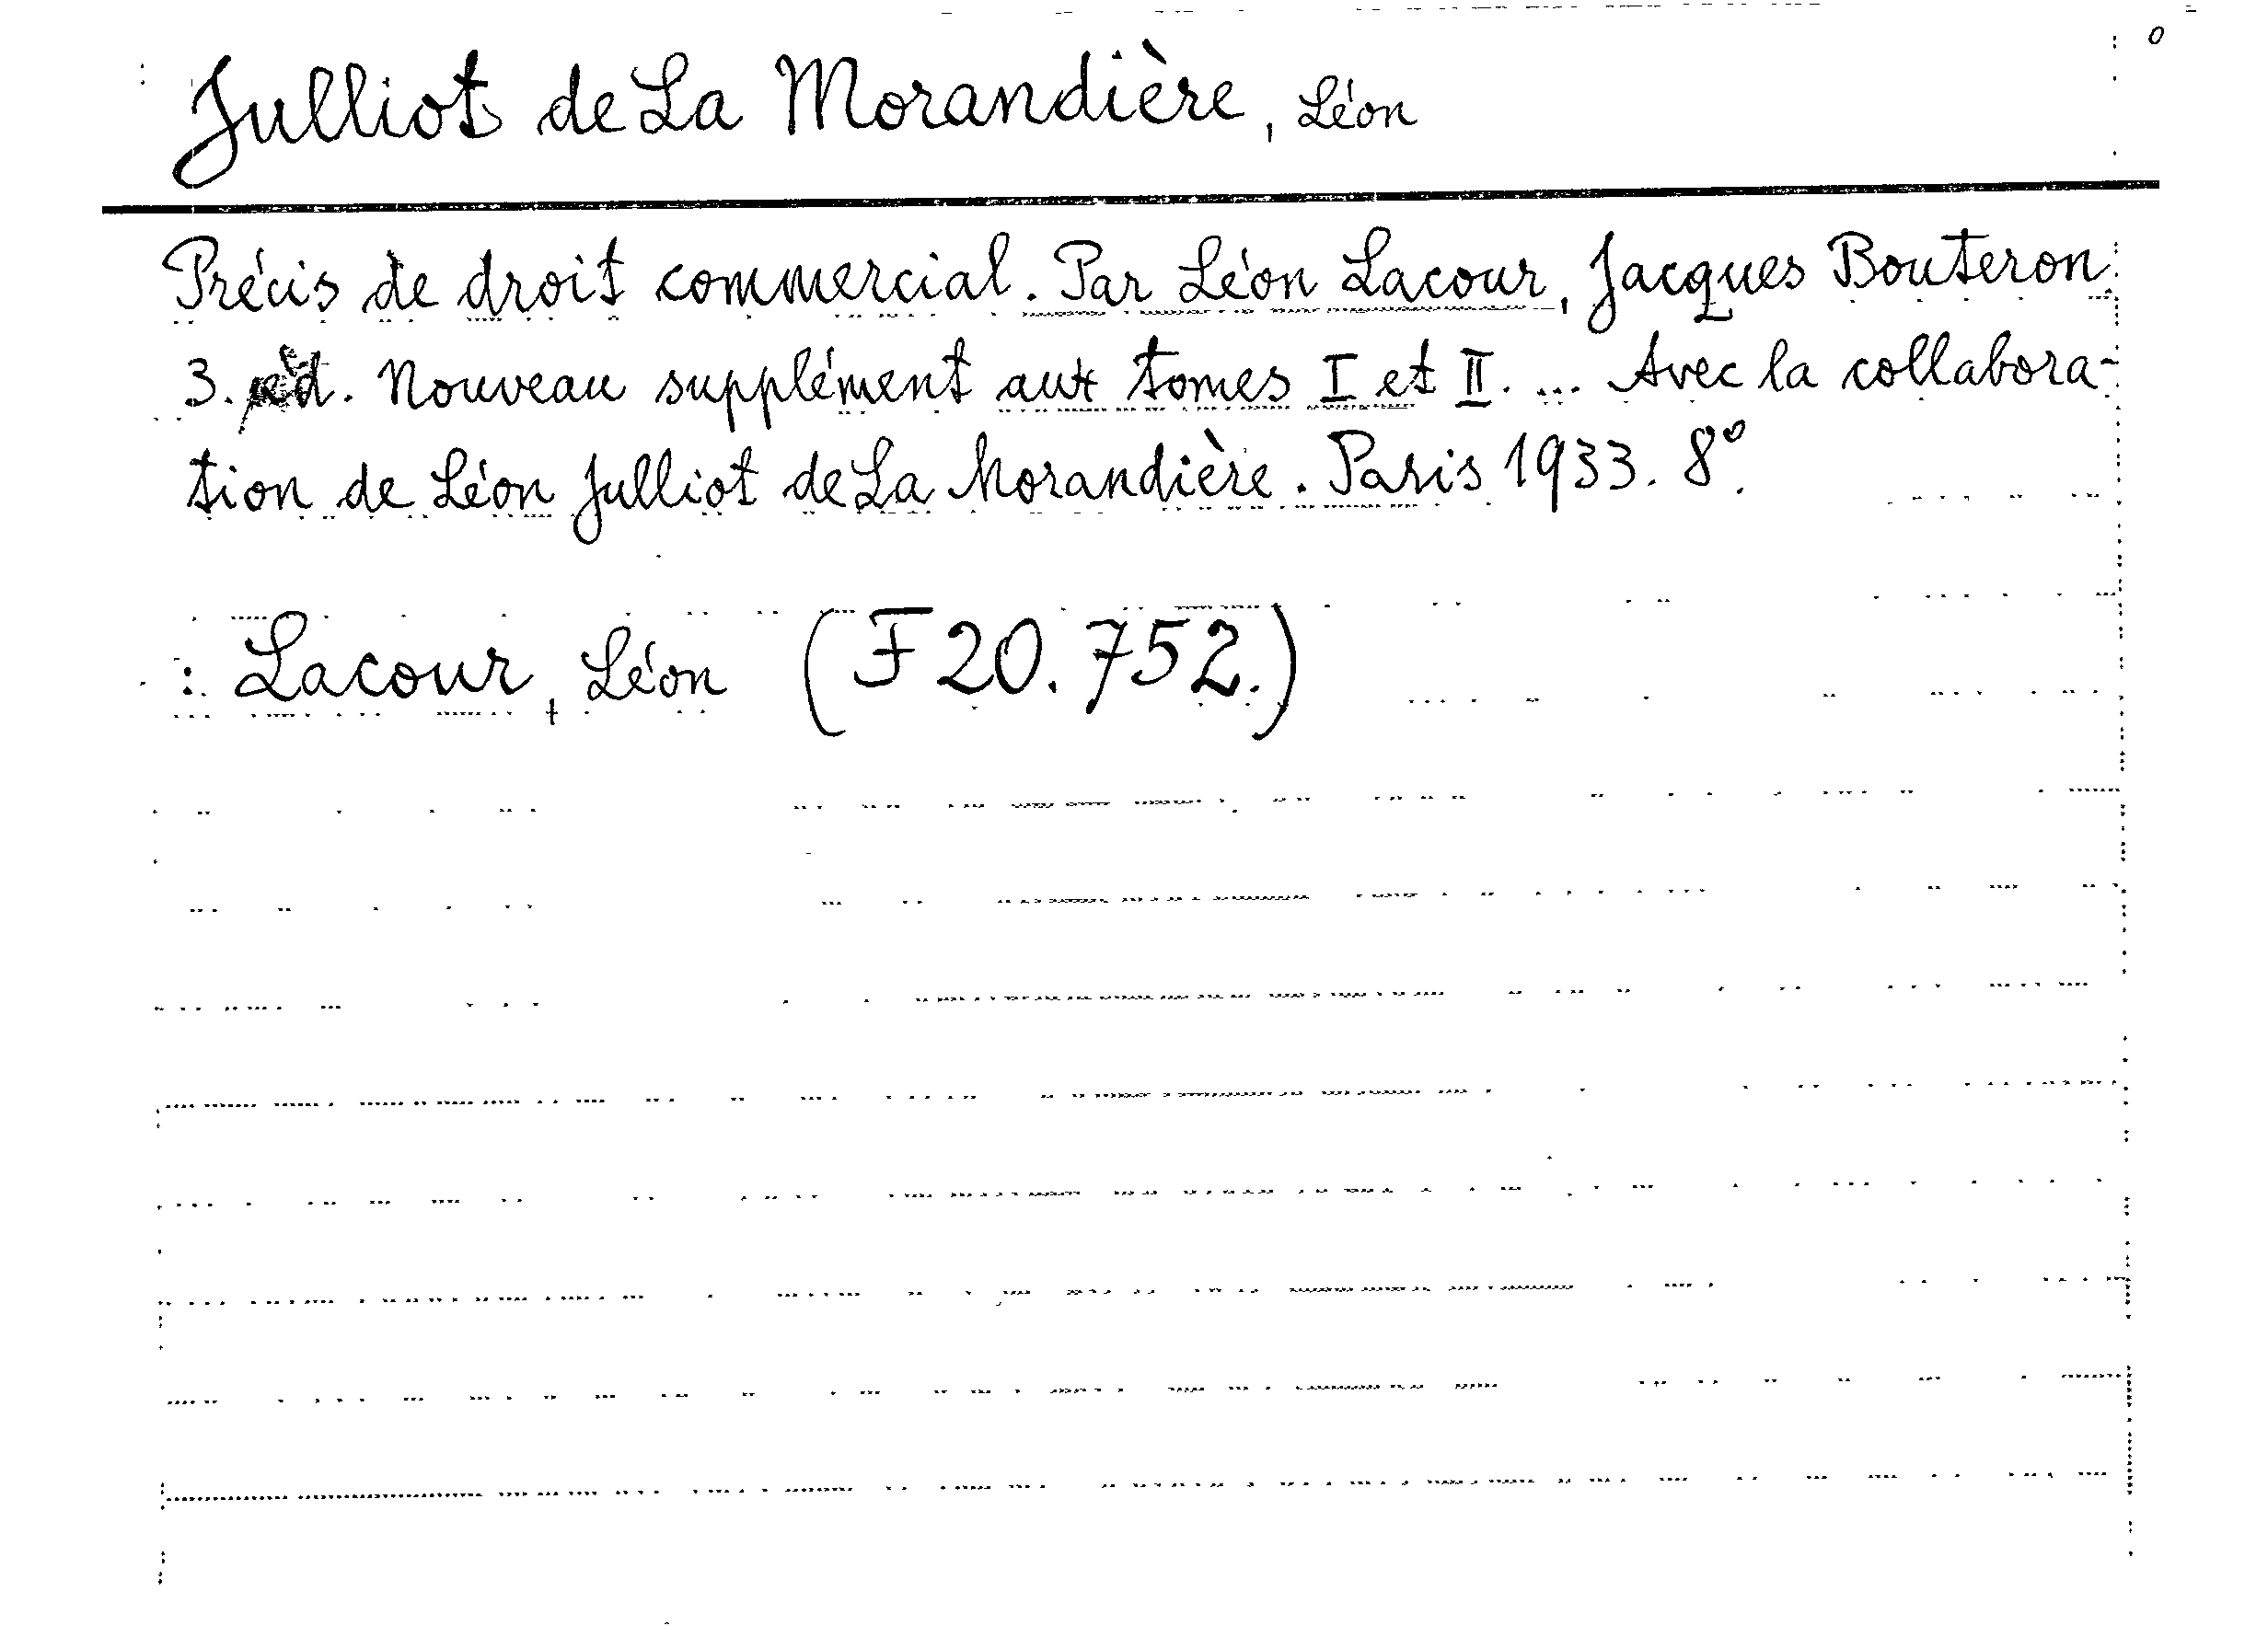 Julliot de La Morandière, Léon
Précis de droit commercial. Par Léon Lacour, Jacques Bouteron.
3. éd. Nouveau supplément aux tomes I et II. ... Avec la collabora-
tion de Léon Julliot de La Morandière. Paris 1933. 8°.
: Lacour, Léon (F 20.752.)